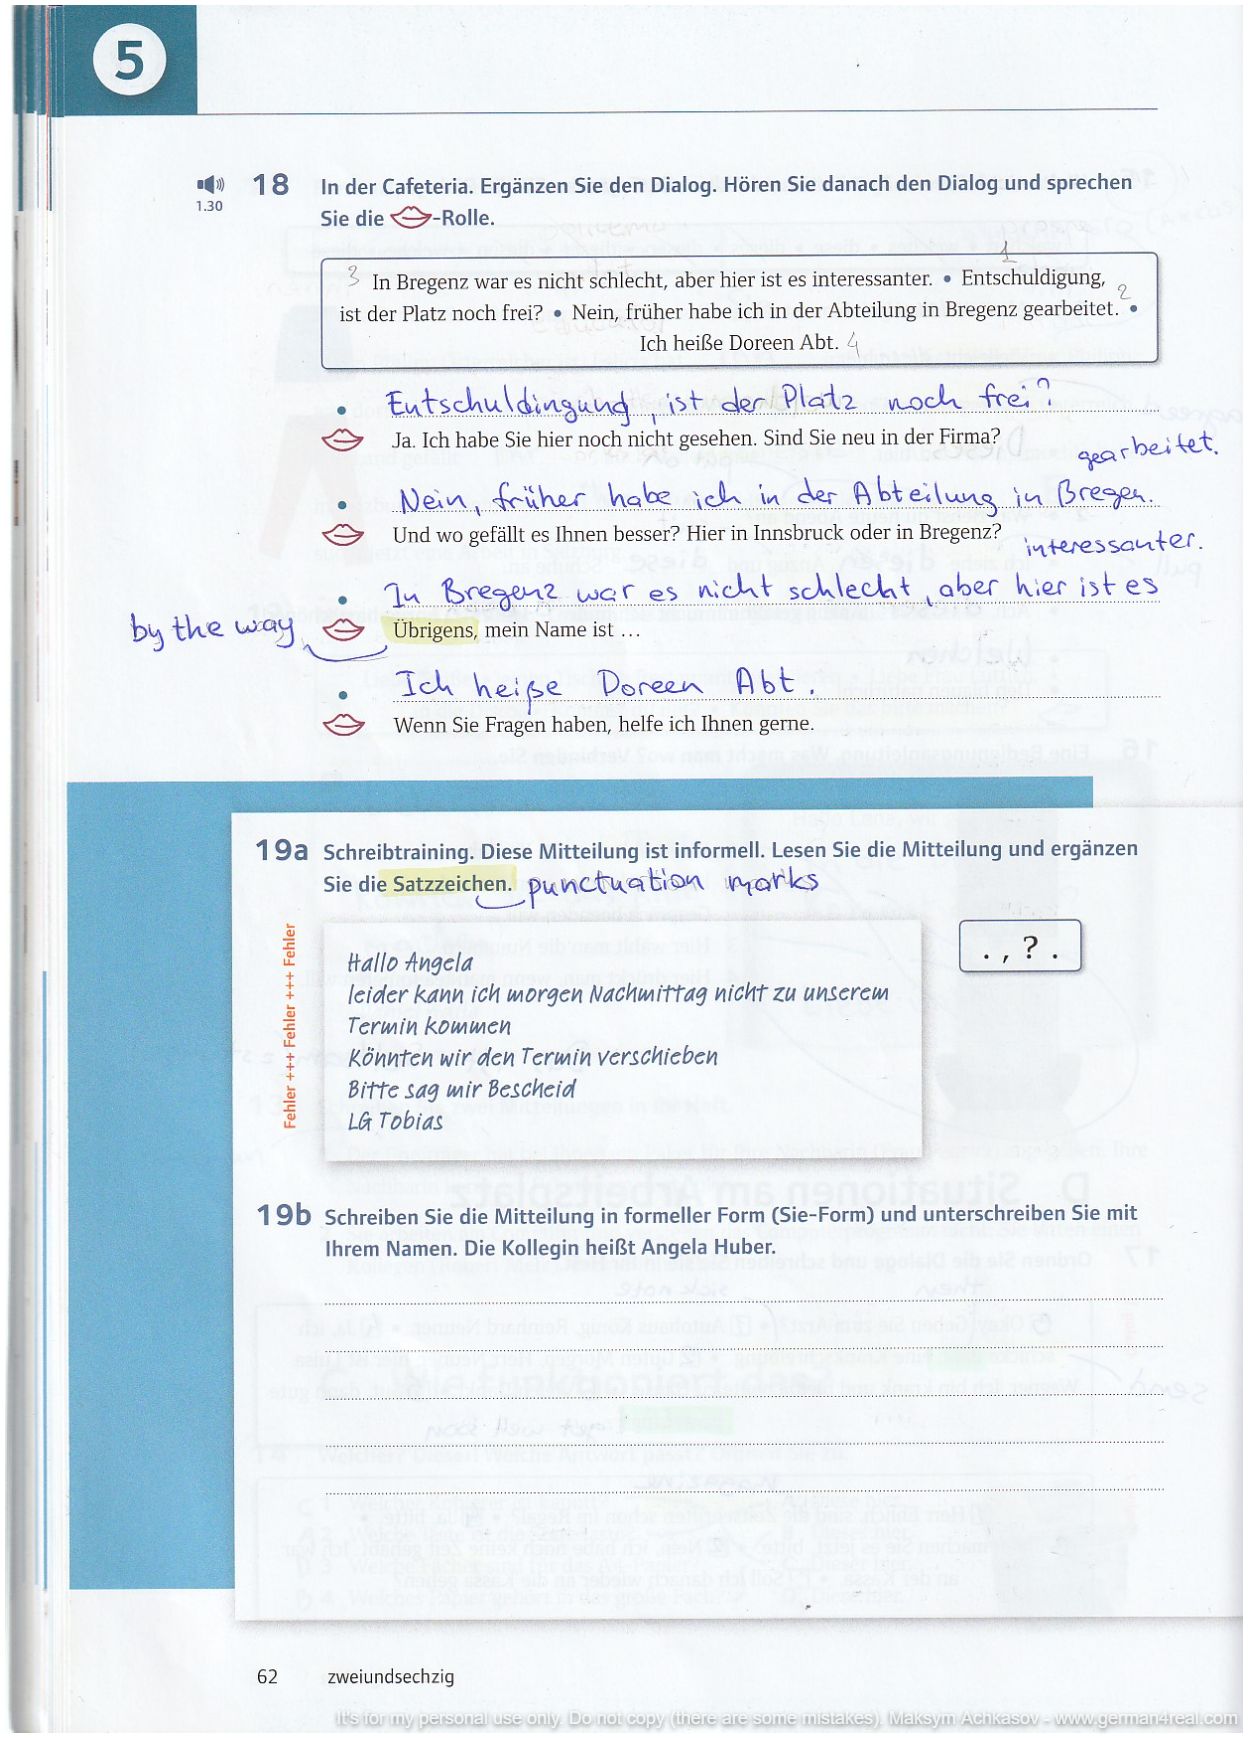 5
1.30
18 In der Cafeteria. Ergänzen Sie den Dialog. Hören Sie danach den Dialog und sprechen
Sie die -Rolle.
1
3 In Bregenz war es nicht schlecht, aber hier ist es interessanter. • Entschuldigung,
ist der Platz noch frei? • Nein, früher habe ich in der Abteilung in Bregenz gearbeitet. 2 •
Ich heiße Doreen Abt. 4
• Entschuldingung, ist der Platz noch frei?
Ja. Ich habe Sie hier noch nicht gesehen. Sind Sie neu in der Firma?
gearbeitet.
• Nein, früher habe ich in der Abteilung in Bregen.
Und wo gefällt es Ihnen besser? Hier in Innsbruck oder in Bregenz?
interessanter.
• In Bregenz war es nicht schlecht, aber hier ist es
by the way
Übrigens, mein Name ist ...
• Ich heiße Doreen Abt.
Wenn Sie Fragen haben, helfe ich Ihnen gerne.
19a Schreibtraining. Diese Mitteilung ist informell. Lesen Sie die Mitteilung und ergänzen
Sie die Satzzeichen. punctuation marks
Fehler +++ Fehler +++ Fehler
. , ? .
Hallo Angela
leider kann ich morgen Nachmittag nicht zu unserem
Termin kommen
Könnten wir den Termin verschieben
Bitte sag mir Bescheid
LG Tobias
19b Schreiben Sie die Mitteilung in formeller Form (Sie-Form) und unterschreiben Sie mit
Ihrem Namen. Die Kollegin heißt Angela Huber.
62 zweiundsechzig
It's for my personal use only. Do not copy (there are some mistakes). Maksym Achkasov - www.german4real.com